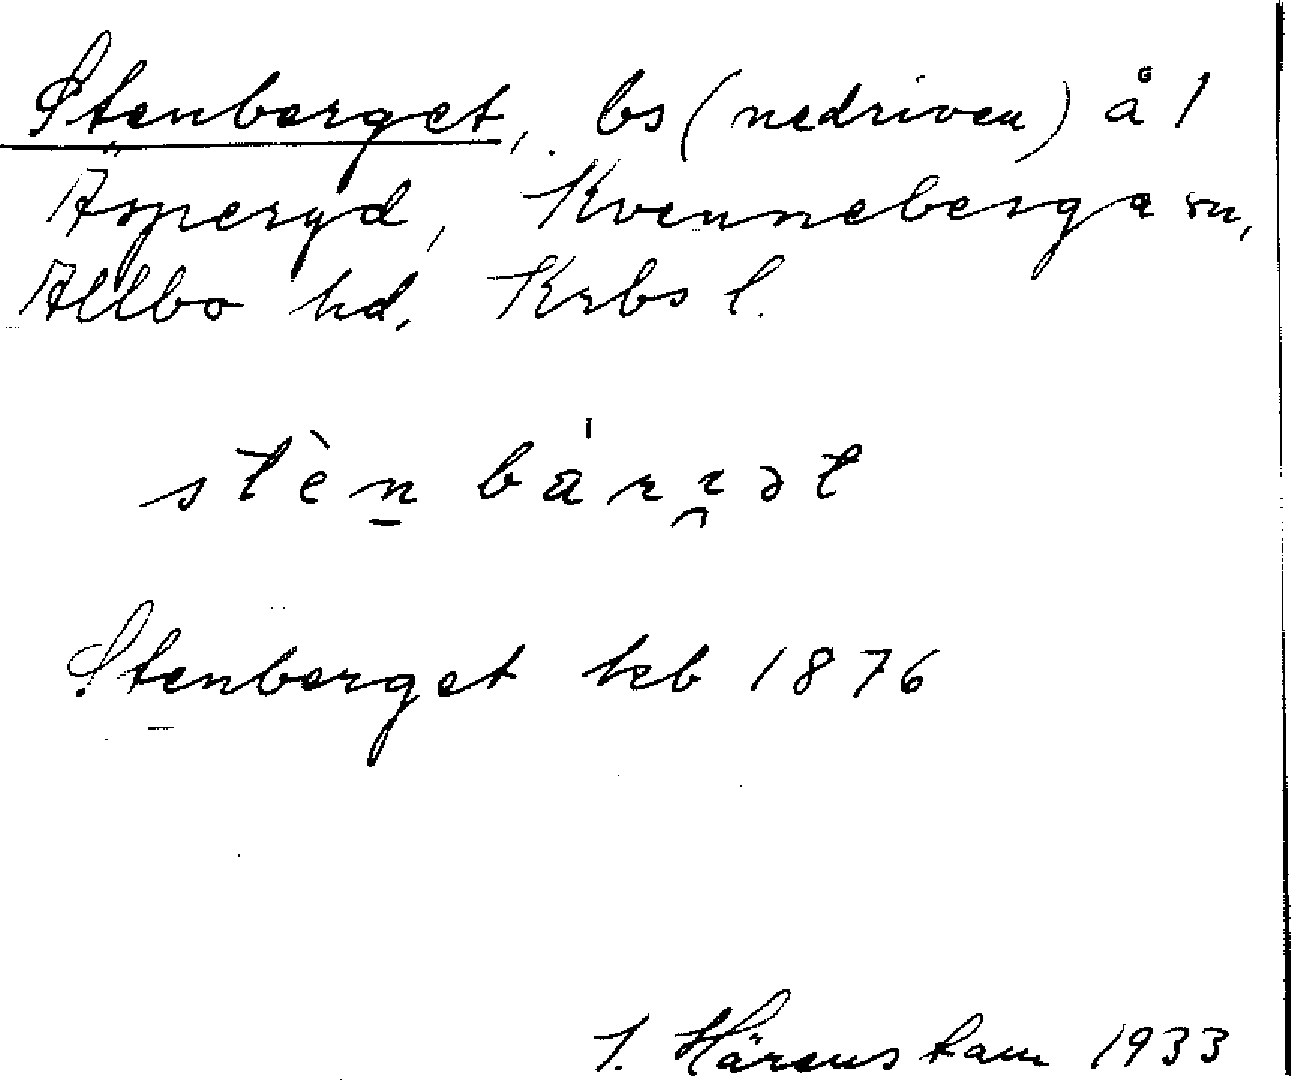 Stenberget, bs (nedriven) å 1
Äsperyd, Kvenneberga sn,
Allbo hd. Krbs l.
stèn bárrət
Stenberget hfb 1876
I. Härenstam 1933